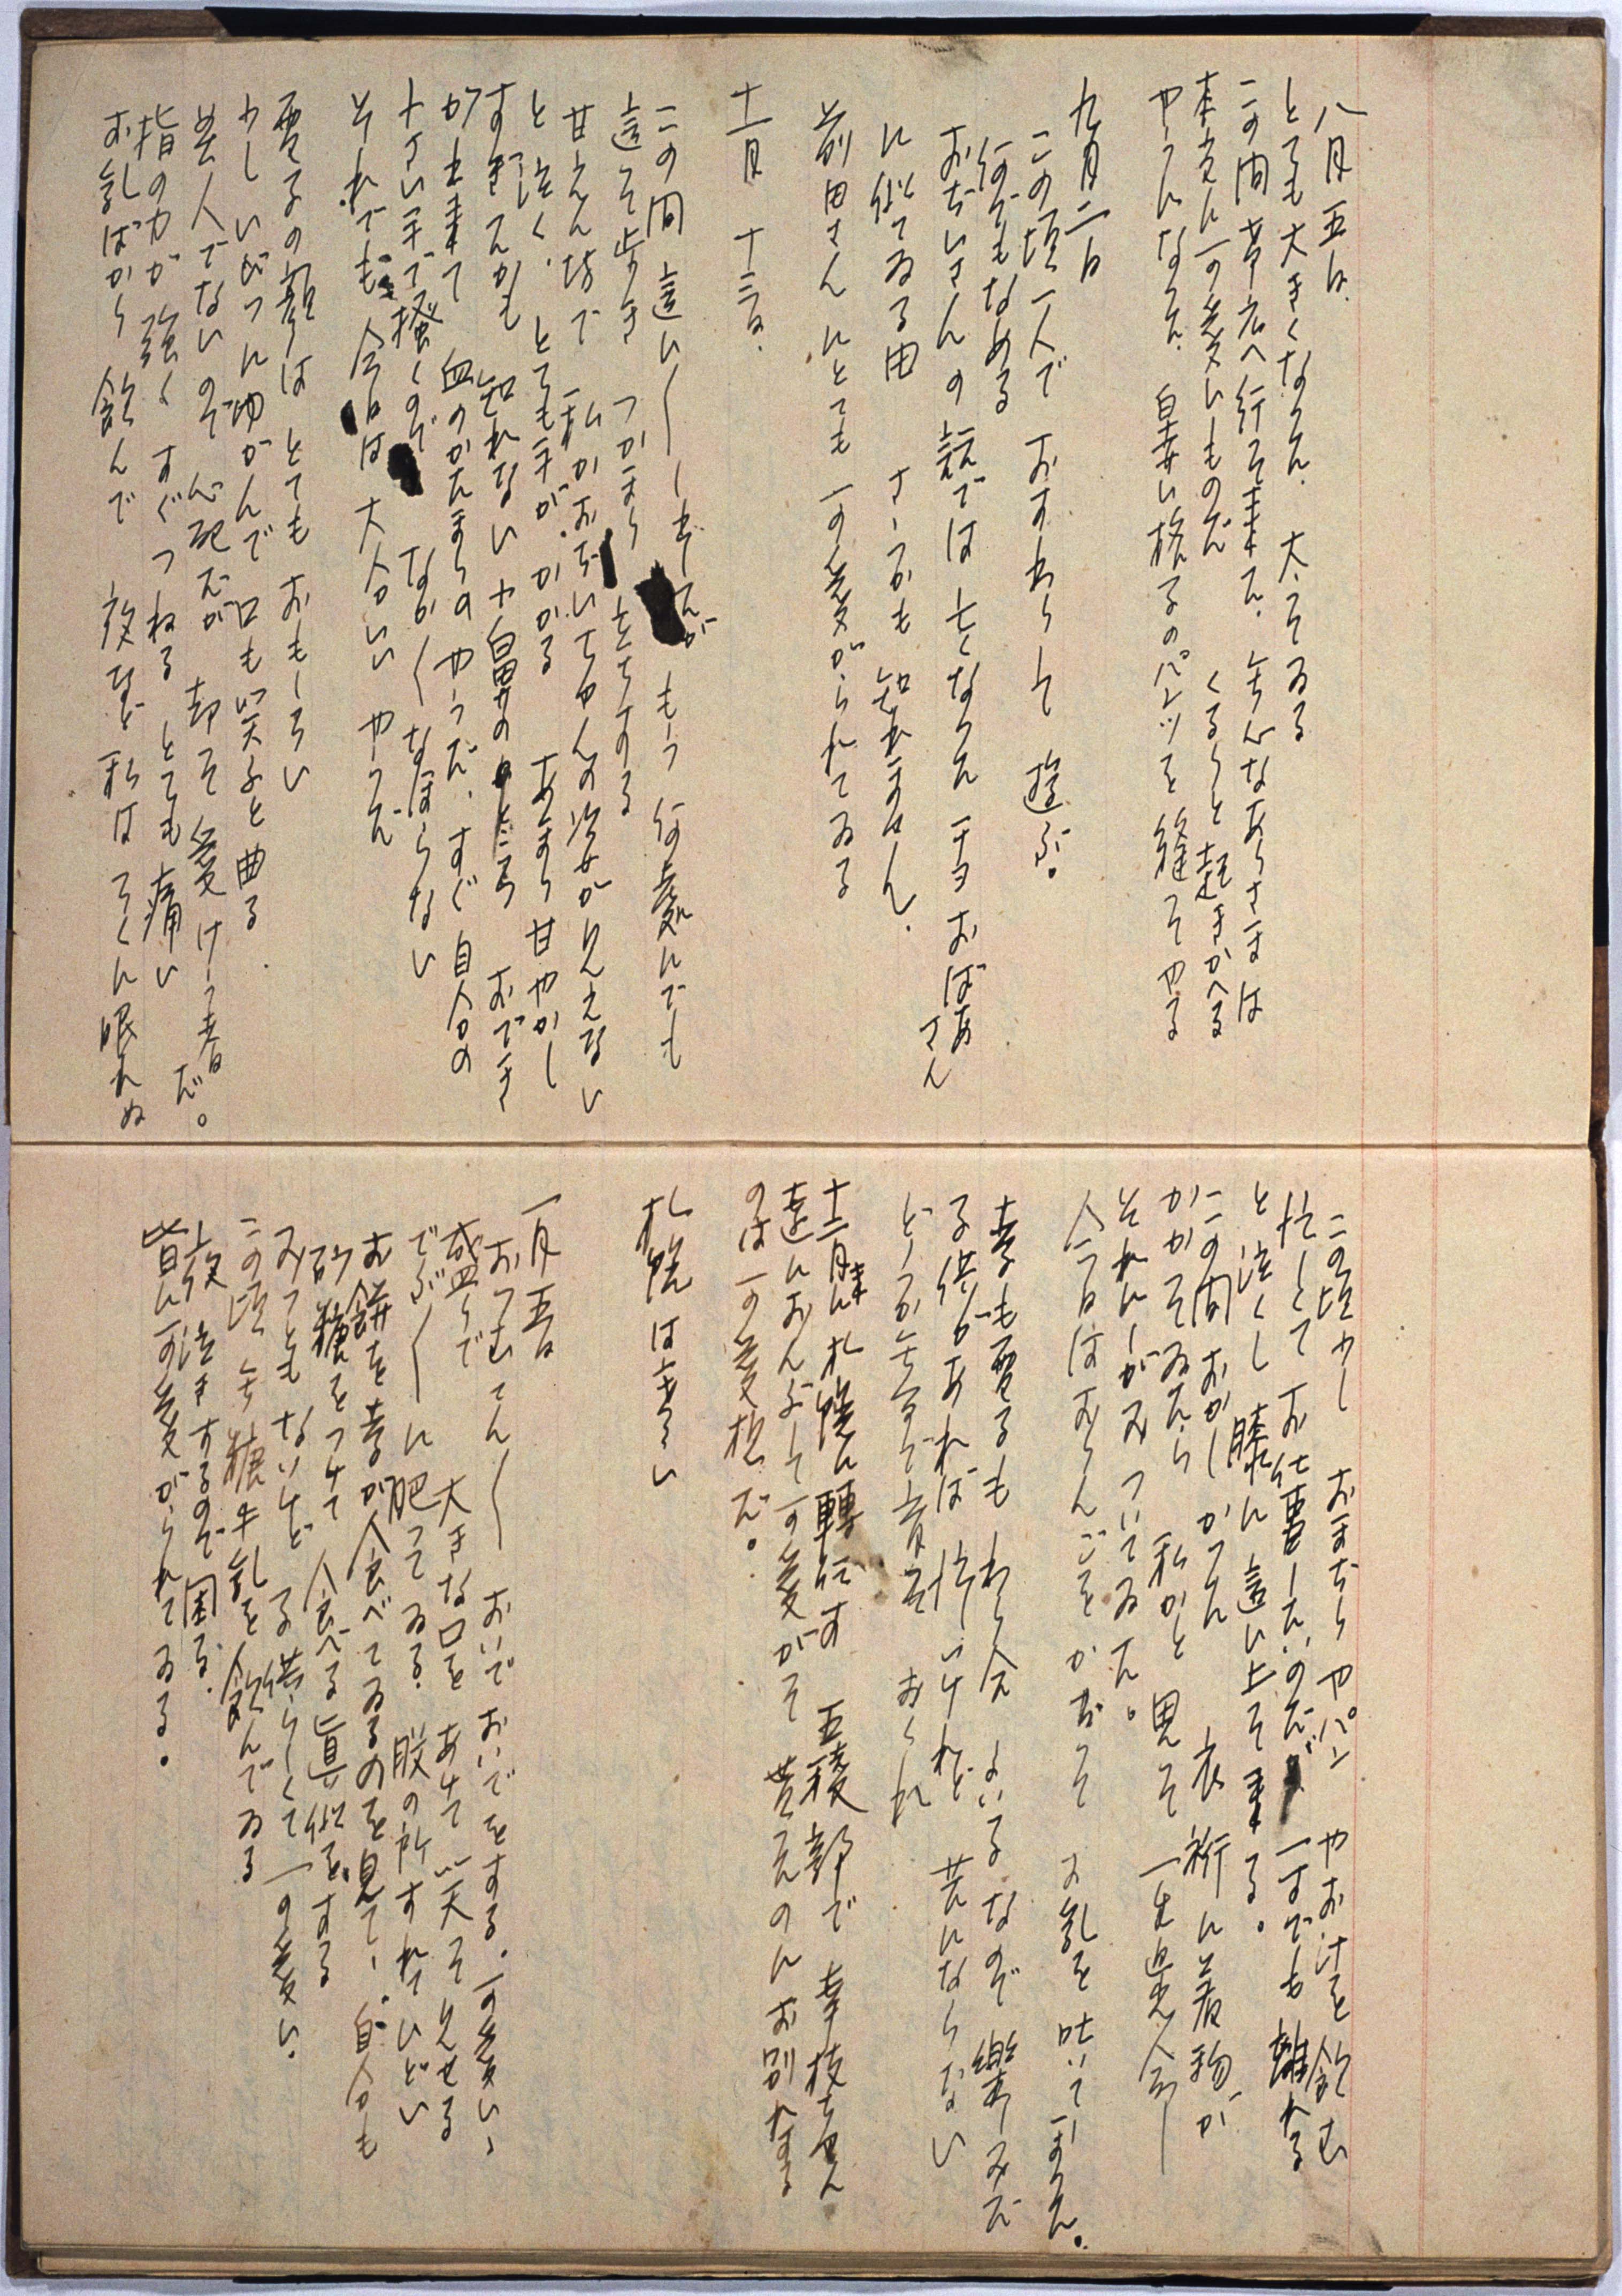 八月五日、
とても大きくなつた、太つてゐる
この間帯広へ行つて来た、無心なあかさまは
本当に可愛いものだ くるりと起きかへる
やうになつた、皇女い格子のパンツを縫つてやる
九月二日
この頃一人で おすわりして 遊ぶ。
何でもなめる
おぢいさんの説では亡くなつた 一ヨおばあさん
に似てゐる由 さうかも知れません、
前田さんにとても可愛がられてゐる
十一月 十三日、
この間這い〳〵しましたが もう 何處にでも
這つて歩き つかまり立ちする
甘えん坊で 私かおぢいちやんの姿が見えない
と泣く、とても手が、かかる あまり甘やかし
すぎたかも 知れない 小鼻のところ おでき
が出来て 血のかたまりのやうだ、すぐ自分の
小さい手で掻くので なか〳〵なほらない
それでも 今日は 大分いい やうだ
雪子の顔は とても おもしろい
少し いびつに ゆがんで 口も笑ふと曲る、
美人でないので 心配だが 却つて 愛けう者だ。
指の力が強く すぐつねる とても痛い
お乳ばかり飲んで 夜など私は ろくに眠れぬ
この頃少し おまぢりやパン やお汁を飲む
忙しくて お仕事したいのだが 一寸でも離れる
と泣くし 膝に這い上つて来る。
この間おかしかつた 衣裄に着物が
かかつてゐたら 私かと思つて 一生懸命
それにしがみついてゐた。
今日はおりんごをかぢつて お乳を吐いてしまつた。
幸も雪子も わり合 よい子なので 樂しみだ
子供があれば 忙しいけれど 苦にならない
どうか無事で育つて おくれ
十二月末に札幌に轉任す 五稜郭で 幸枝ちやん
達におんぶして可愛がつて 貰つたのに お別れする
のは可愛想だ。
札幌は寒い
一月五日
おつむてん〳〵 おいでおいでをする、可愛いゝ
盛りで 大きな口を あけて 笑つて見せる
でぶ〳〵に肥つてゐる、股の所すれてひどい
お餅を幸が食べてゐるのを見て、自分も
砂糖をつけて 食べる真似をする
みつともないけど 子供らしくて可愛い、
この頃 無糖牛乳を飲んでゐる
夜泣きするので困る、
皆に可愛がられてゐる。